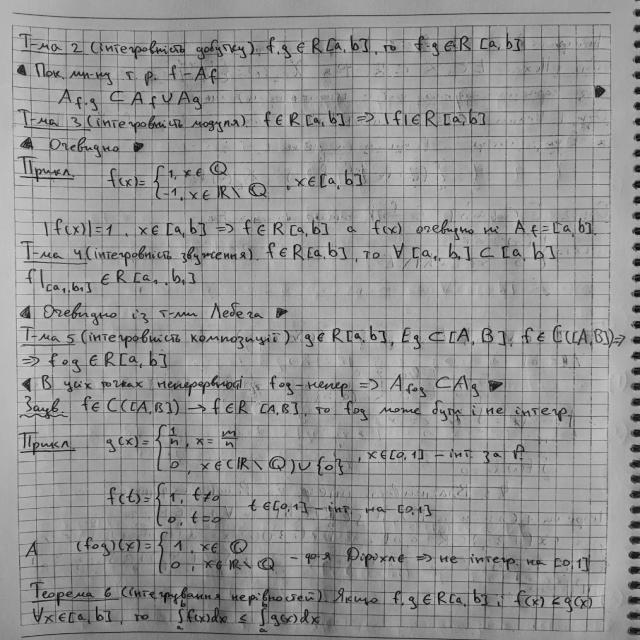 Т-ма 2 (інтегровність добутку). f, g ∈ R[a, b], то f·g ∈ R[a, b]
◀ Пок. мн-ну т. р. f – A_f
A_{f·g} ⊂ A_f ∪ A_g ▶
Т-ма 3 (інтегровність модуля) f ∈ R[a, b] => |f| ∈ R[a, b]
◀ Очевидно ▶
Прикл. f(x) = { 1, x ∈ ℚ ; -1, x ∈ ℝ \ ℚ , x ∈ [a, b]
|f(x)| = 1, x ∈ [a, b] => f ∈ R[a, b] а f(x) очевидно ні A_f = [a, b].
Т-ма 4 (інтегровність звуження). f ∈ R[a, b], то ∀ [a₁, b₁] ⊂ [a, b]
f|_{[a₁, b₁]} ∈ R[a₁, b₁]
◀ Очевидно із т-ми Лебега ▶
Т-ма 5 (інтегровність композиції) g ∈ R[a, b], E_g ⊂ [A, B], f ∈ C([A, B]) =>
=> f∘g ∈ R[a, b]
◀ В усіх точках неперервності g f∘g – непер => A_{f∘g} ⊂ A_g ▶
Заув. f ∈ C([A, B]) → f ∈ R[A, B], то f∘g може бути і не інтегр,
Прикл g(x) = { 1/n, x = m/n ; 0, x ∈ (ℝ \ ℚ) ∪ {0} , x ∈ [0, 1] – інт. за Р.
f(t) = { 1, t ≠ 0 ; 0, t = 0 t ∈ [0, 1] – інт. на [0, 1]
А (f∘g)(x) = { 1, x ∈ ℚ ; 0, x ∈ ℝ \ ℚ – ф-я Діріхле => не інтегр. на [0, 1]
Теорема 6 (інтегрування нерівностей). Якщо f, g ∈ R[a, b] і f(x) ≤ g(x)
∀x ∈ [a, b], то ∫_a^b f(x)dx ≤ ∫_a^b g(x)dx